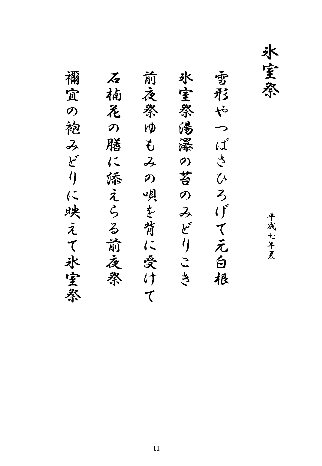 氷室祭
平成七年夏
雪形やつばさひろげて元白根
氷室祭湯澤の苔のみどりこき
前夜祭ゆもみの唄を背に受けて
石楠花の膳に添えらる前夜祭
禰宜の袍みどりに映えて氷室祭
11